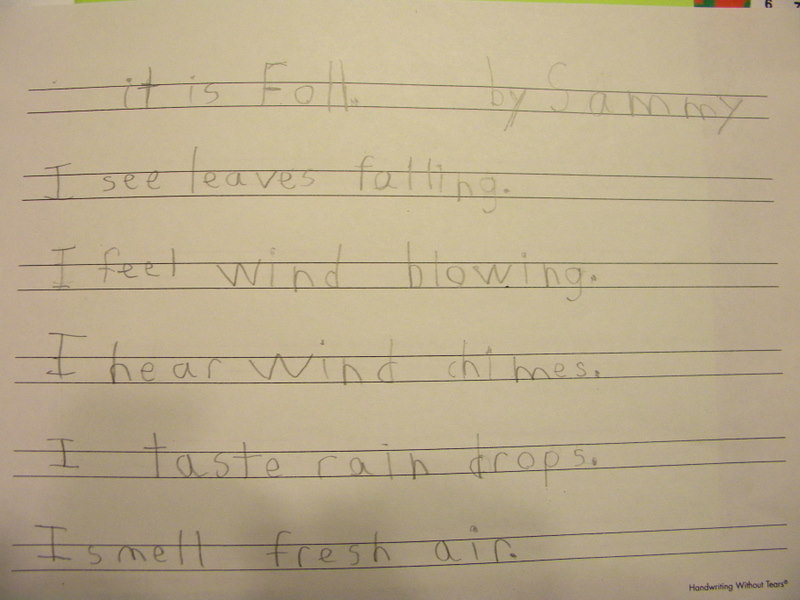 6 7
it is Foll. by Sammy
I see leaves falling.
I feel wind blowing.
I hear wind chimes.
I taste rain drops.
I smell fresh air.
Handwriting Without Tears®